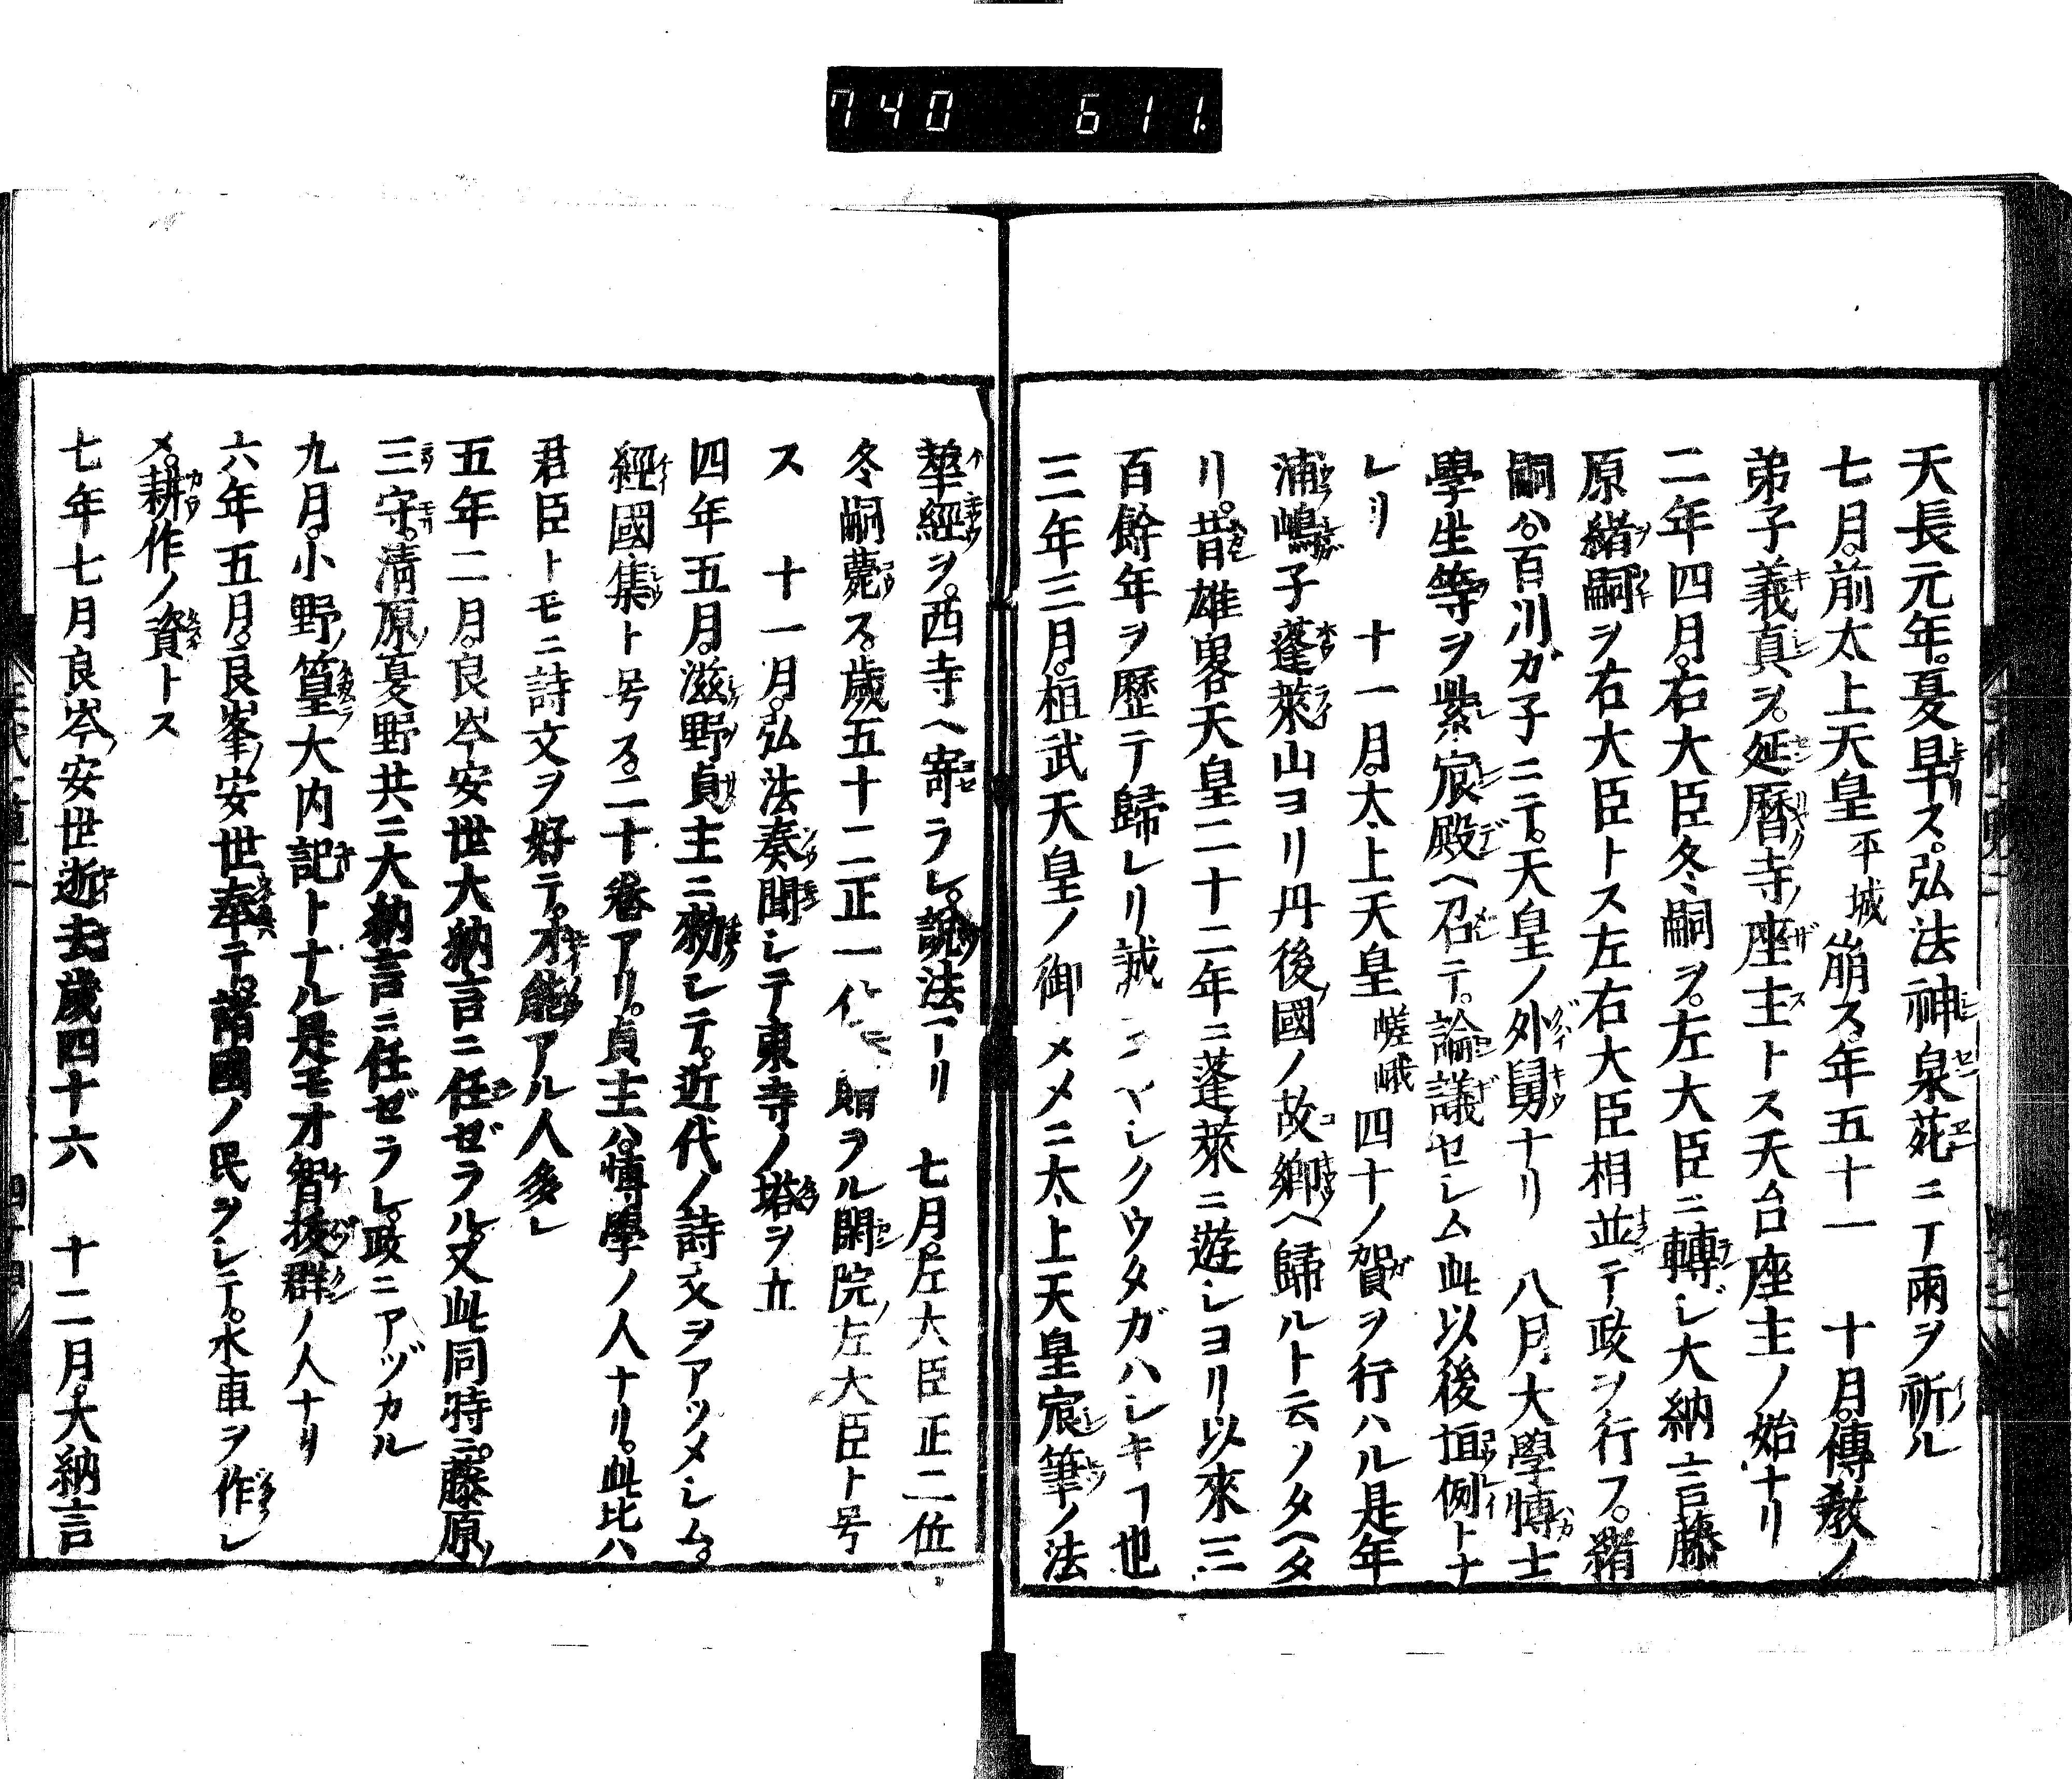 740 611.
天長元年。夏旱ス。弘法神泉苑ニ丁雨ヲ祈ル
七月。前太上天皇平城崩ス。年五十一 十月。傳教ノ
弟子義真ヲ。延暦寺ノ座主トス天台座主ノ始ナリ
二年四月。右大臣冬嗣ヲ。左大臣ニ轉ジ大納言藤
原緒嗣ヲ右大臣トス左右大臣相並テ政ヲ行フ。緒
嗣ハ。百川ガ子ニテ。天皇ノ外舅ナリ 八月。大學博士
學生等ヲ紫宸殿ヘ召テ。論議セシム此以後恒例トナ
レリ 十一月。太上天皇嵯峨四十ノ賀ヲ行ハル是年
浦嶋子蓬萊山ヨリ丹後國ノ故郷ヘ歸ルト云ノタヘタ
リ。昔雄畧天皇二十二年ニ蓬萊ニ遊シヨリ以來三
百餘年ヲ歷テ歸レリ誠ニヤシクウタガハシキヿ也
三年三月。桓武天皇ノ御メメニ太上天皇宸筆ノ法
華經ヲ。西寺ヘ寄ラレ。說法アリ 七月。左大臣正二位
冬嗣薨ス。歲五十二正一位 贈ラル閑院左大臣ト号
ス 十一月。弘法奏聞シテ東寺ノ塔ヲ立
四年五月。滋野貞主ニ勅シテ。近代ノ詩文ヲアツメシム。
經國集ト号ス。二十卷アリ。貞主ハ。博學ノ人ナリ。此比ハ
君臣トモニ詩文ヲ好テ。才能アル人多シ
五年二月。良岑安世大納言ニ任ゼラル。又此同時ニ。藤原ノ
三守。清原夏野共ニ大納言ニ任ゼラレ。政ニアヅカル
九月。小野ノ篁大内記トナル是モオ智拔群ノ人ナリ
六年五月。良峯ノ安世奉テ。諸國ノ民ヲシテ。水車ヲ作シ
メ。耕作ノ資トス
七年七月良岑ノ安世逝去歲四十六 十二月。大納言